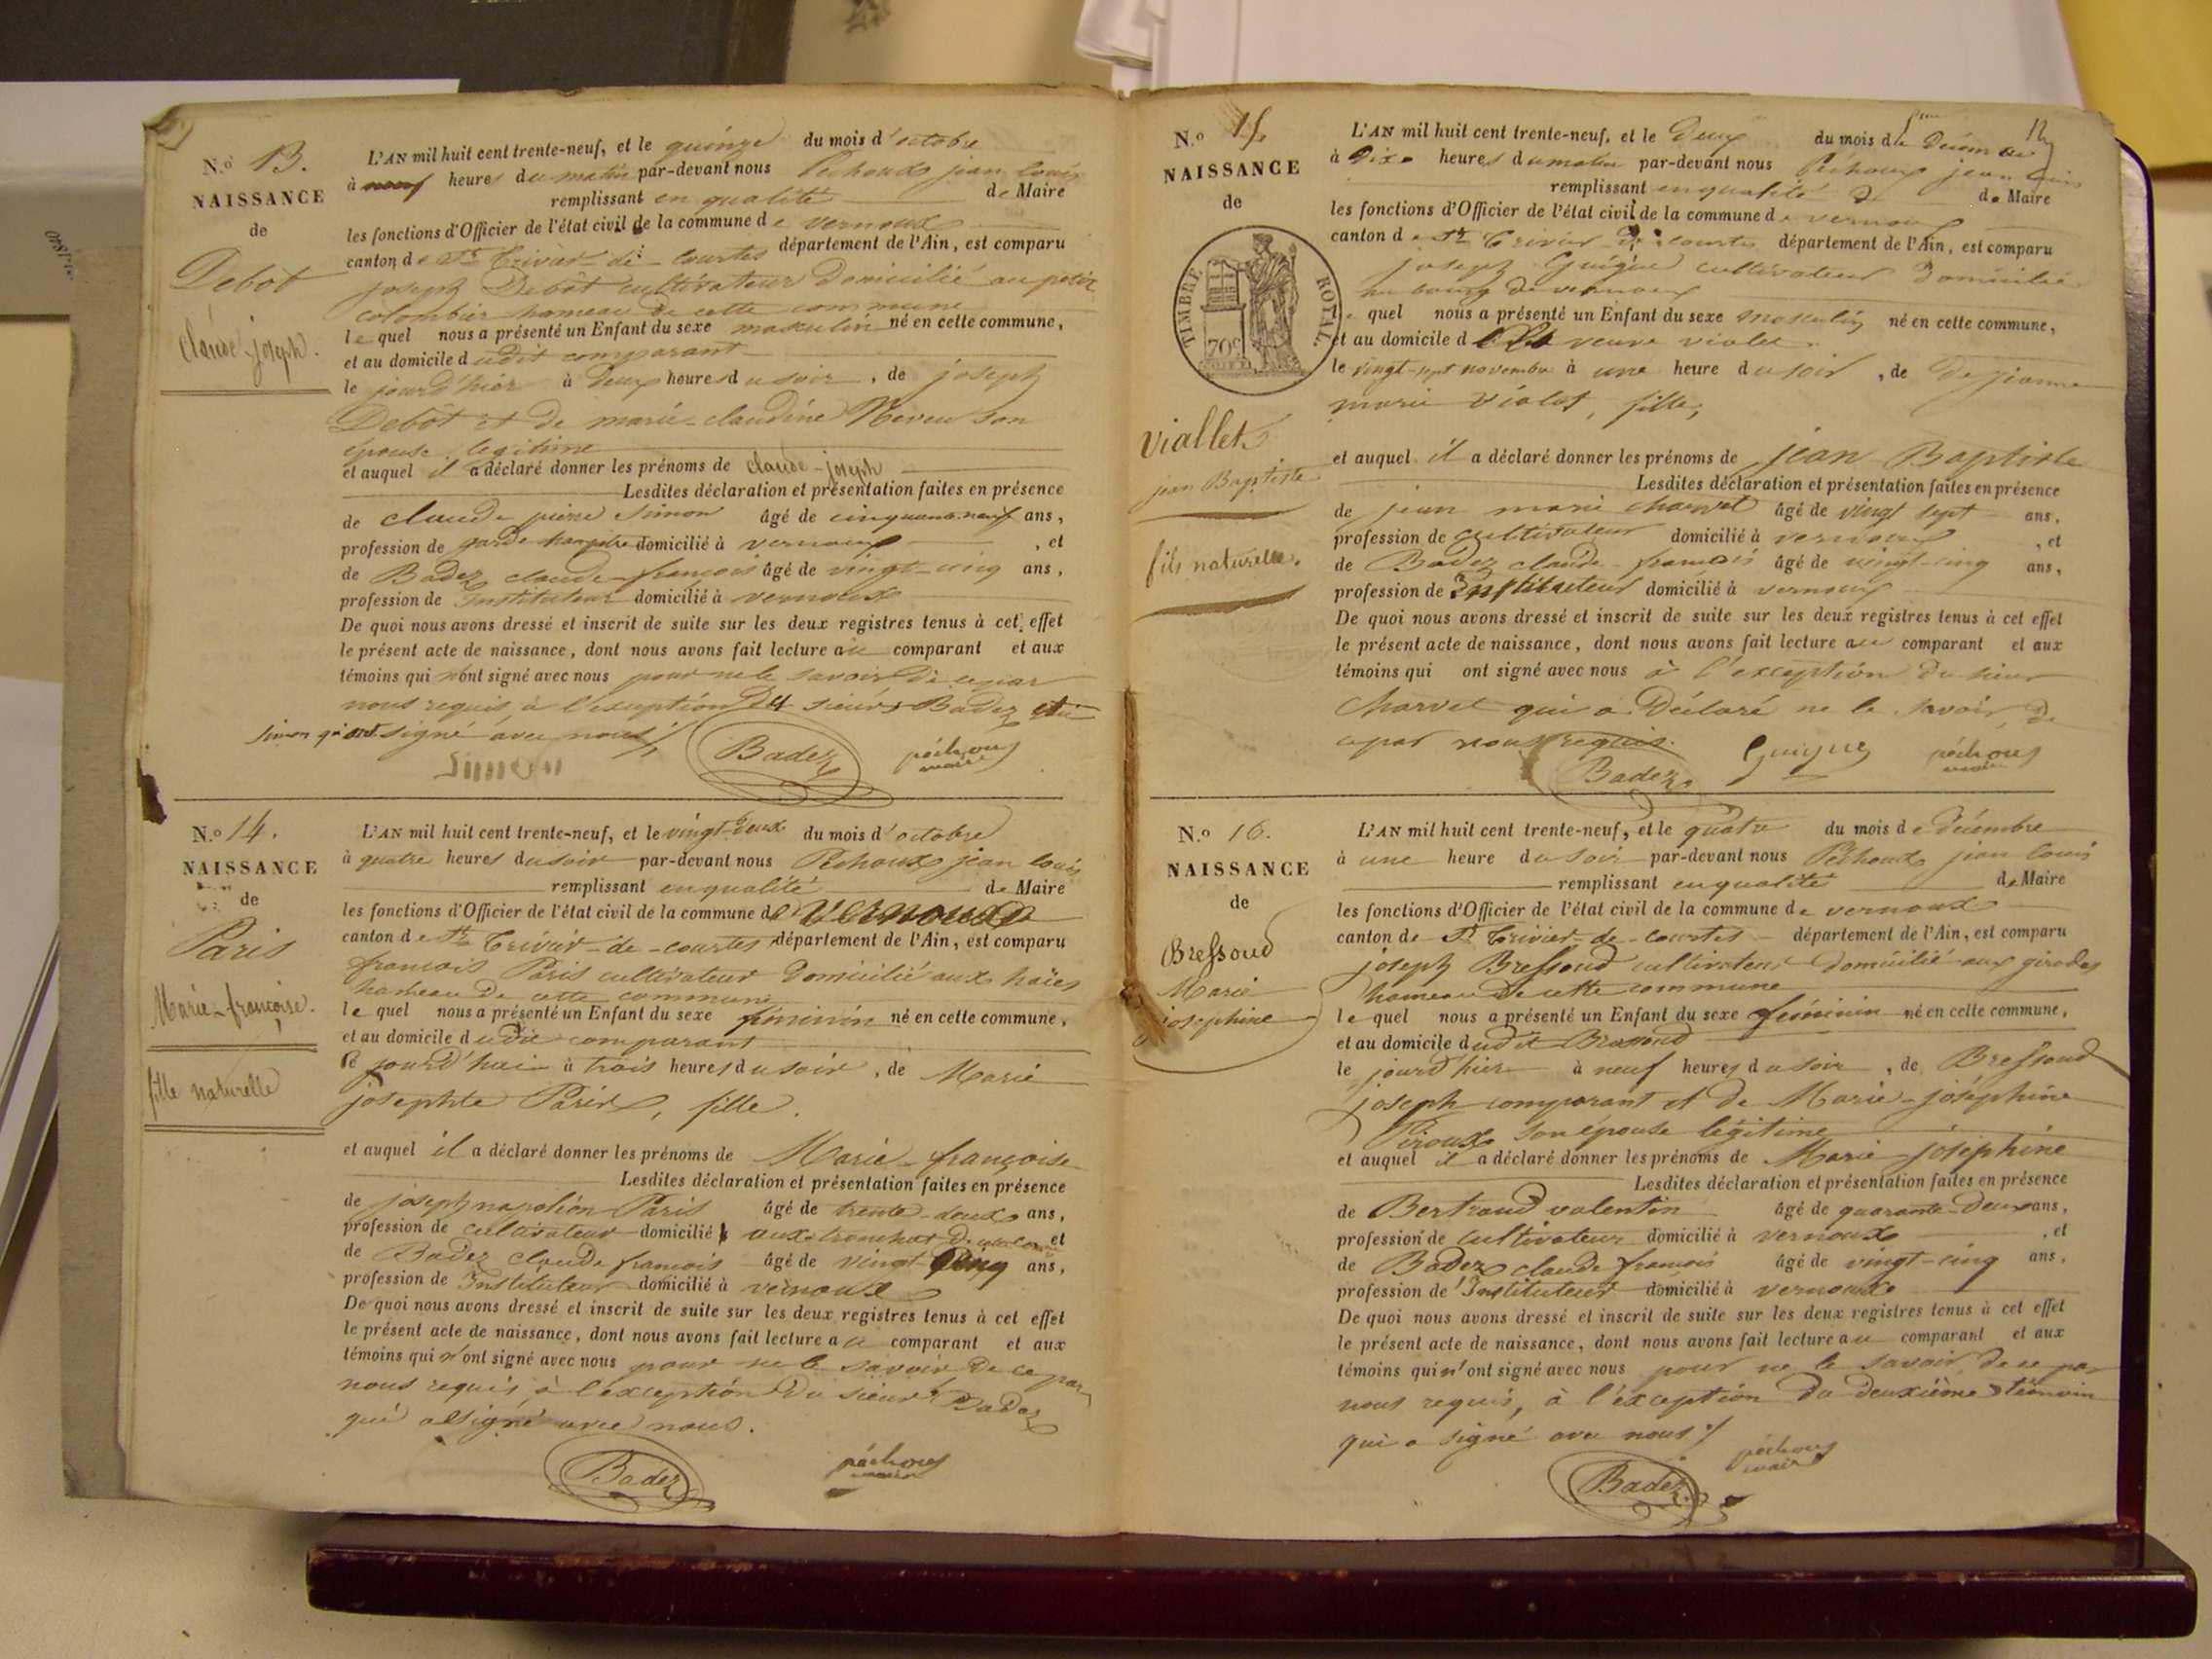 N.º 13.
NAISSANCE
de
Debôt
Claude-joseph.
L'AN mil huit cent trente-neuf, et le quinze du mois d'octobre
à neuf heures du matin par-devant nous Péchoux jean louis
remplissant en qualité de Maire
les fonctions d'Officier de l'état civil de la commune de vernoux
canton de St Trivier-de-Courtes département de l'Ain, est comparu
joseph Debôt cultivateur domicilié au petit
colombier hameau de cette commune
lequel nous a présenté un Enfant du sexe masculin né en cette commune,
et au domicile dudit comparant
le jourd'hier à deux heures du soir, de joseph
Debôt et de marie-claudine Neveu son
épouse légitime
et auquel il a déclaré donner les prénoms de claude-joseph
Lesdites déclaration et présentation faites en présence
de claude pierre Simon âgé de cinquante-neuf ans,
profession de garde champêtre domicilié à vernoux, et
de Badez claude-françois âgé de vingt-cinq ans,
profession de Instituteur domicilié à vernoux
De quoi nous avons dressé et inscrit de suite sur les deux registres tenus à cet effet
le présent acte de naissance, dont nous avons fait lecture au comparant et aux
témoins qui n'ont signé avec nous pour ne le savoir de ce par
nous requis, à l'exception des sieurs Badez et
Simon qui ont signé avec nous
Simon Badez péchoux
maire
N.º 14.
NAISSANCE
de
Paris
Marie-françoise.
fille naturelle
L'AN mil huit cent trente-neuf, et le vingt-deux du mois d'octobre
à quatre heures du soir par-devant nous Péchoux jean louis
remplissant en qualité de Maire
les fonctions d'Officier de l'état civil de la commune de vernoux
canton de St Trivier-de-courtes département de l'Ain, est comparu
francois Paris cultivateur domicilié aux haies
hameau de cette commune
lequel nous a présenté un Enfant du sexe féminin né en cette commune,
et au domicile dudit comparant
le jourd'hui à trois heures du soir, de Marie
josephte Paris, fille.
et auquel il a déclaré donner les prénoms de Marie-françoise
Lesdites déclaration et présentation faites en présence
de joseph napoléon Paris âgé de trente-deux ans,
profession de cultivateur domicilié aux et
de Badez claude francois âgé de vingt cinq ans,
profession de Instituteur domicilié à vernoux
De quoi nous avons dressé et inscrit de suite sur les deux registres tenus à cet effet
le présent acte de naissance, dont nous avons fait lecture au comparant et aux
témoins qui n'ont signé avec nous pour ne le savoir de ce par
nous requis, à l'exception du sieur Badez
qui a signé avec nous.
Badez péchoux
maire
12
N.º 15.
NAISSANCE
de
TIMBRE ROYAL.
70c
viallet
jean Baptiste
fils naturelle.
L'AN mil huit cent trente-neuf, et le deux du mois de Décembre
à dix heures du matin par-devant nous Péchoux jean louis
remplissant en qualité de Maire
les fonctions d'Officier de l'état civil de la commune de vernoux
canton de St Trivier de courtes département de l'Ain, est comparu
joseph Guigue cultivateur domicilié
au bourg de vernoux
lequel nous a présenté un Enfant du sexe masculin né en cette commune,
et au domicile de la veuve violet
le vingt-sept novembre à une heure du soir, de De jeanne
marie violet, fille,
et auquel il a déclaré donner les prénoms de jean Baptiste
Lesdites déclaration et présentation faites en présence
de jean marie charvet âgé de vingt sept ans,
profession de cultivateur domicilié à vernoux, et
de Badez claude-francois âgé de vingt-cinq ans,
profession de Instituteur domicilié à vernoux
De quoi nous avons dressé et inscrit de suite sur les deux registres tenus à cet effet
le présent acte de naissance, dont nous avons fait lecture au comparant et aux
témoins qui ont signé avec nous à l'exception du sieur
Charvet qui a déclaré ne le savoir, de
ce par nous requis.
Badez Guigue péchoux
maire
N.º 16.
NAISSANCE
de
Bressoud
Marie
josephine
L'AN mil huit cent trente-neuf, et le quatre du mois de décembre
à une heure du soir par-devant nous Péchoux jean louis
remplissant en qualité de Maire
les fonctions d'Officier de l'état civil de la commune de vernoux
canton de St Trivier-de-courtes département de l'Ain, est comparu
joseph Bressoud cultivateur domicilié aux girodes
hameau de cette commune
lequel nous a présenté un Enfant du sexe féminin né en cette commune,
et au domicile dudit Bressoud
le jourd'hier à neuf heures du soir, de Bressoud
joseph comparant et de Marie-joséphine
Piroux son épouse légitime
et auquel il a déclaré donner les prénoms de Marie joséphine
Lesdites déclaration et présentation faites en présence
de Bertrand valentin âgé de quarante-deux ans,
profession de cultivateur domicilié à vernoux, et
de Badez claude françois âgé de vingt-cinq ans,
profession d'Instituteur domicilié à vernoux
De quoi nous avons dressé et inscrit de suite sur les deux registres tenus à cet effet
le présent acte de naissance, dont nous avons fait lecture au comparant et aux
témoins qui n'ont signé avec nous pour ne le savoir, de ce par
nous requis, à l'exception du deuxième témoin
qui a signé avec nous
Badez péchoux
maire